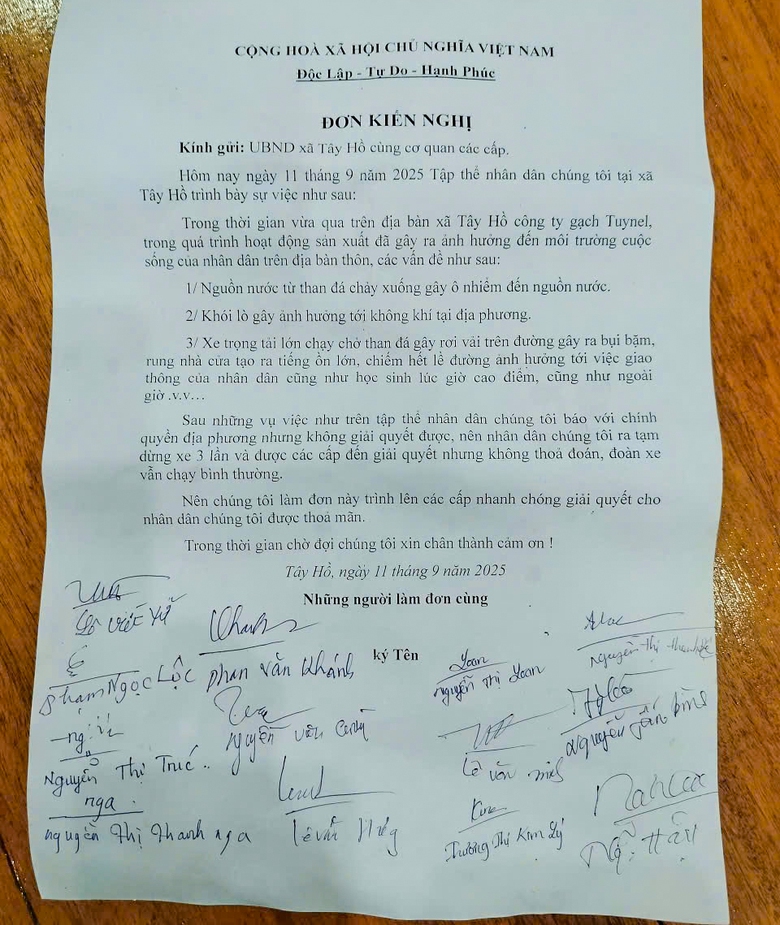 CỘNG HOÀ XÃ HỘI CHỦ NGHĨA VIỆT NAM
Độc Lập - Tự Do - Hạnh Phúc
ĐƠN KIẾN NGHỊ
Kính gửi: UBND xã Tây Hồ cùng cơ quan các cấp.
Hôm nay ngày 11 tháng 9 năm 2025 Tập thể nhân dân chúng tôi tại xã
Tây Hồ trình bày sự việc như sau:
Trong thời gian vừa qua trên địa bàn xã Tây Hồ công ty gạch Tuynel,
trong quá trình hoạt động sản xuất đã gây ra ảnh hưởng đến môi trường cuộc
sống của nhân dân trên địa bàn thôn, các vấn đề như sau:
1/ Nguồn nước từ than đá chảy xuống gây ô nhiễm đến nguồn nước.
2/ Khói lò gây ảnh hưởng tới không khí tại địa phương.
3/ Xe trọng tải lớn chạy chở than đá gây rơi vải trên đường gây ra bụi bặm,
rung nhà cửa tạo ra tiếng ồn lớn, chiếm hết lề đường ảnh hưởng tới việc giao
thông của nhân dân cũng như học sinh lúc giờ cao điểm, cũng như ngoài
giờ .v.v…
Sau những vụ việc như trên tập thể nhân dân chúng tôi báo với chính
quyền địa phương nhưng không giải quyết được, nên nhân dân chúng tôi ra tạm
dừng xe 3 lần và được các cấp đến giải quyết nhưng không thoả đoán, đoàn xe
vẫn chạy bình thường.
Nên chúng tôi làm đơn này trình lên các cấp nhanh chóng giải quyết cho
nhân dân chúng tôi được thoả mãn.
Trong thời gian chờ đợi chúng tôi xin chân thành cảm ơn !
Tây Hồ, ngày 11 tháng 9 năm 2025
Những người làm đơn cùng
ký Tên
Lê Viết
Khanh
Phan Văn Khánh
Phạm Ngọc Lộc
Loan
Nguyễn Thị Loan
Nguyễn Thị Thanh
Nguyễn Văn
Lê Văn
Nguyễn Tấn
Nguyễn Thị Trúc
nga
nguyễn Thị Thanh nga
Lê Văn Hưng
Trương Thị Kim Lý